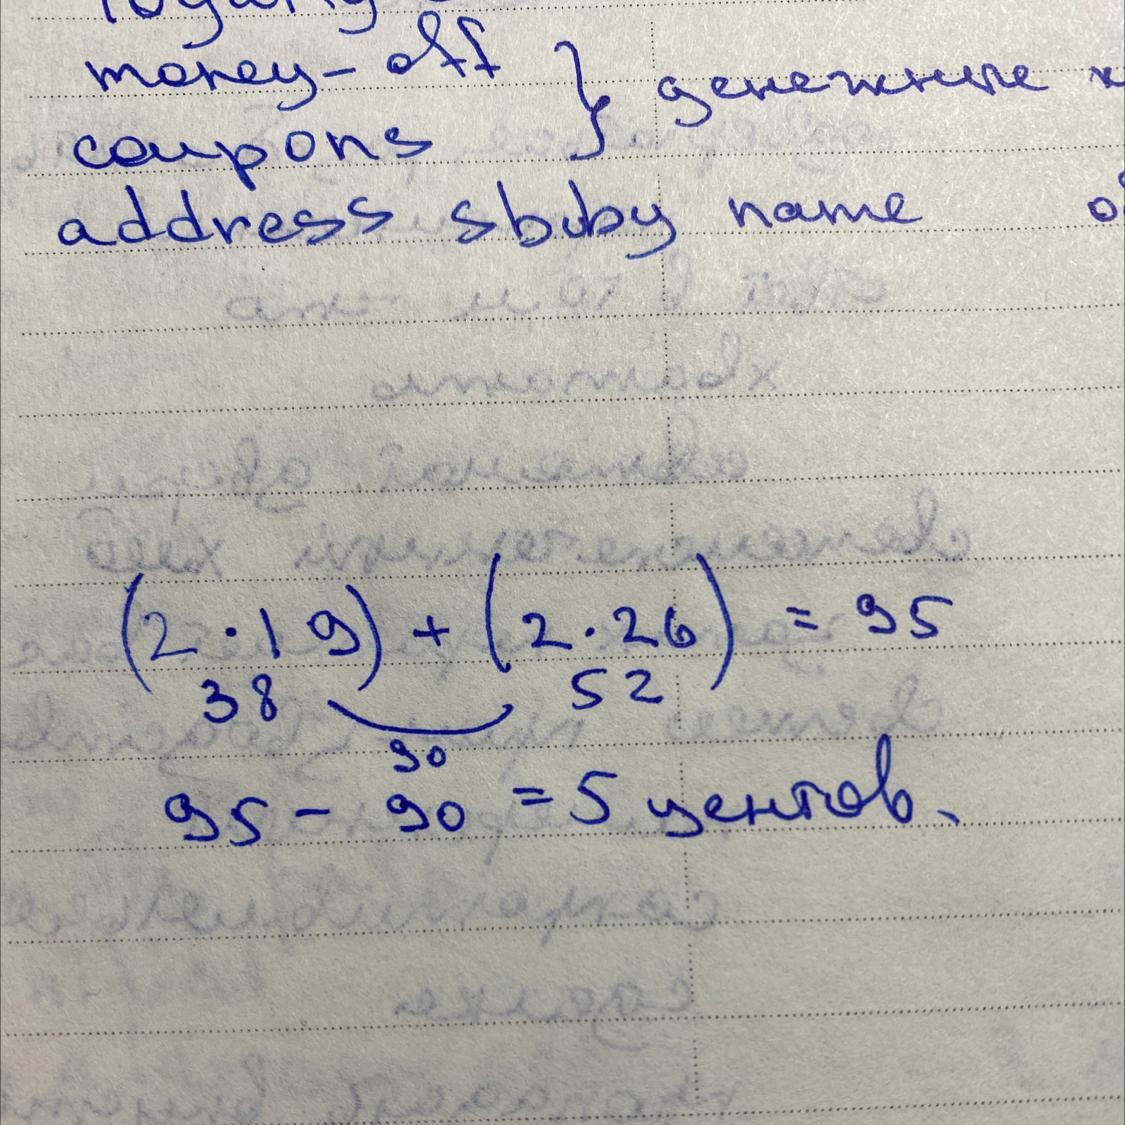 money-off
coupons } денежные
address sbuby name
(2·19) + (2·26) = 95
38 52
90
95 - 90 = 5 центов.